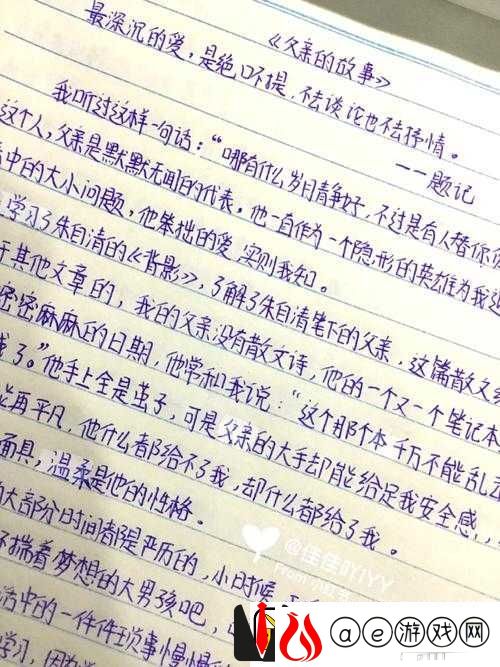 《父亲的故事》
最深沉的爱，是绝口不提，不去谈论也不去抒情。
——题记
我听过这样一句话：“哪有什么岁月静好，不过是有人替你
这个人，父亲是默默无闻的代表，他一直作为一个隐形的英雄为我
中的大小问题，他笨拙的爱，实则我知。
学习了朱自清的《背影》，了解了朱自清笔下的父亲，这篇散文
于其他文章的，我的父亲没有散文诗，他的一个又一个笔记本
密密麻麻的日期，他常和我说：“这个那个本千万不能乱
了。”他手上全是茧子，可是父亲的大手却能给足我安全感，
再平凡，他什么都给不了我，却什么都给了我。
面具，温柔是他的性格。
大部分时间都是严厉的，小时候，
揣着梦想的大男孩吧，
活中的一件件琐事慢慢
学习，因为
@佳佳吖IYY
From 小红书
ae游戏网